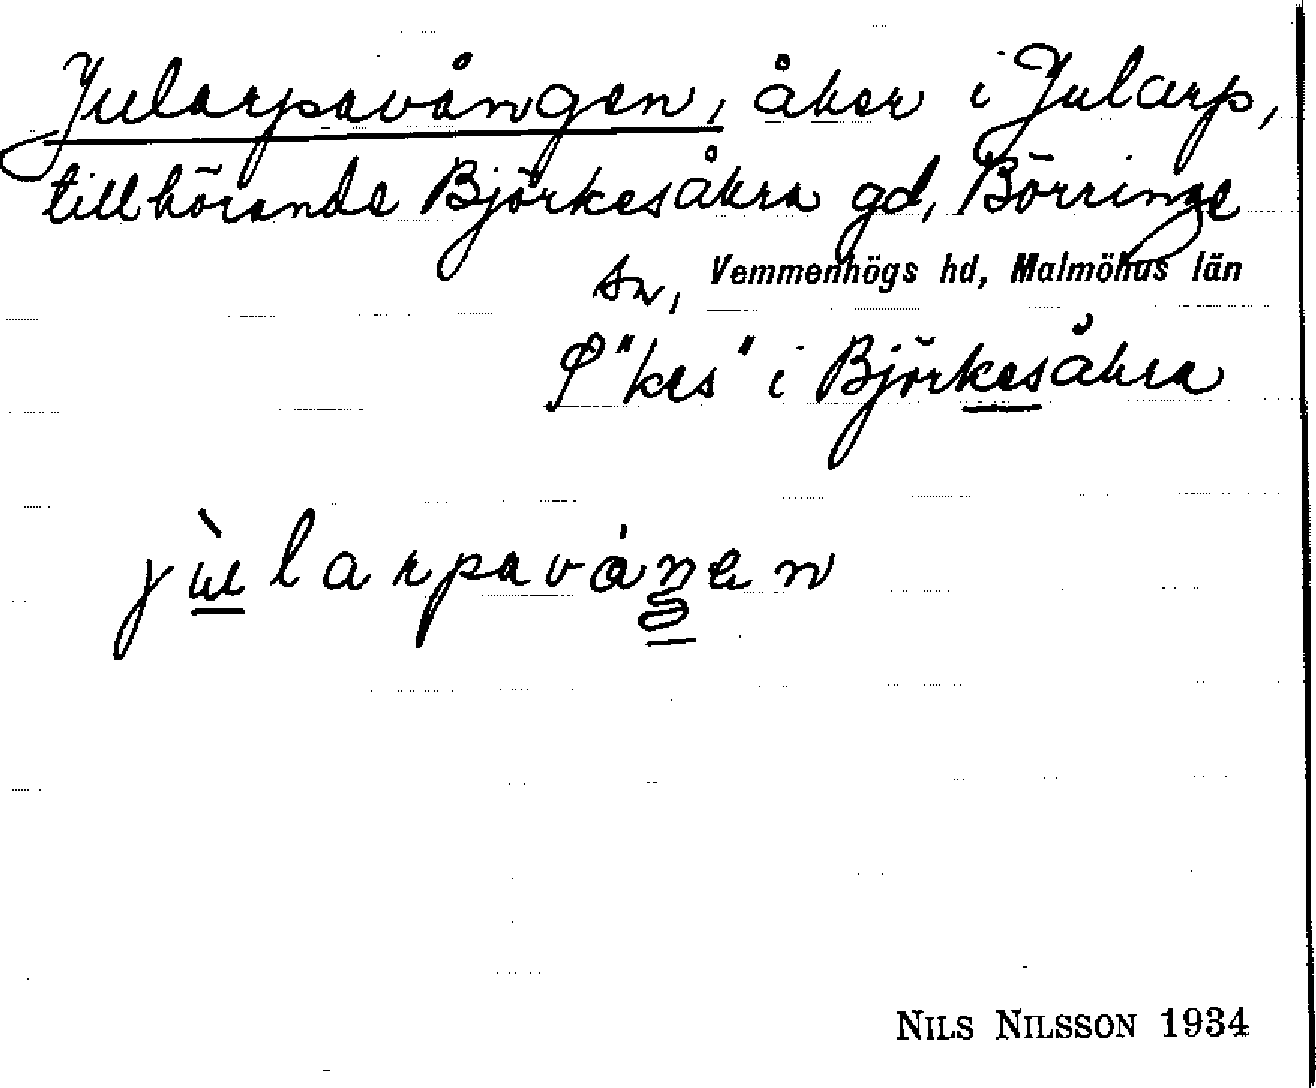 Jularpavången, åker i Jularp,
tillhörande Björkesåkra gd, Börringe
sn, Vemmenhögs hd, Malmöhus län
"kes" i Björkesåkra
NILS NILSSON 1934